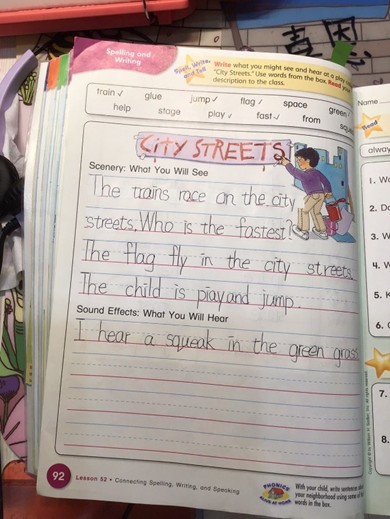 Spelling and
Writing
Think, Write,
and Tell
Write what you might see and hear at a play
"City Streets." Use words from the box. Read your
description to the class.
train ✓ glue jump ✓ flag ✓ space green
help stage play ✓ fast ✓ from
CITY STREETS
Scenery: What You Will See
The trains race on the city
streets. Who is the fastest?
The flag fly in the city streets.
The child is play and jump.
Sound Effects: What You Will Hear
I hear a squeak in the green grass
92 Lesson 52 • Connecting Spelling, Writing, and Speaking
PHONICS
AT HOME
With your child, write sentences
your neighborhood using some of the
words in the box.
Name
Read
alway
1. Wo
2. Do
3. W
4. W
5. K
6.
7.
8.
喜 恩